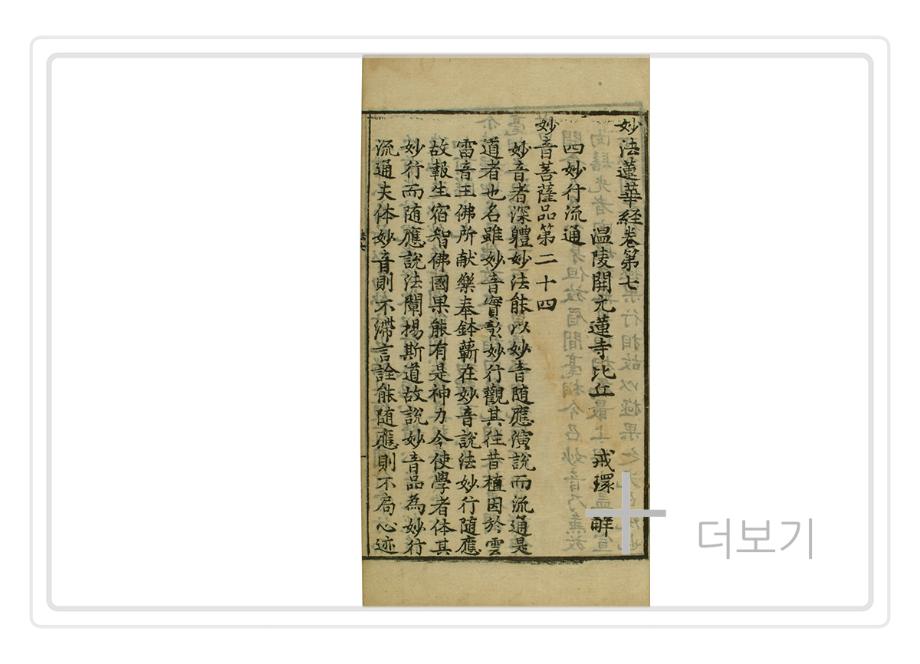 妙法蓮華経卷第七
温陵開元蓮寺比丘 戒環 解
四妙行流通
妙音菩薩品第二十四
妙音者深體妙法能以妙音随應演說而流通是
道者也名雖妙音實彰妙行觀其往昔植因於雲
雷音王佛所献樂奉鉢蘄在妙音說法妙行随應
故報生宿智佛國果能有是神力今使學者体其
妙行而随應說法闡揚斯道故說妙音品為妙行
流通夫体妙音則不滯言詮能随應則不局心迹
더보기